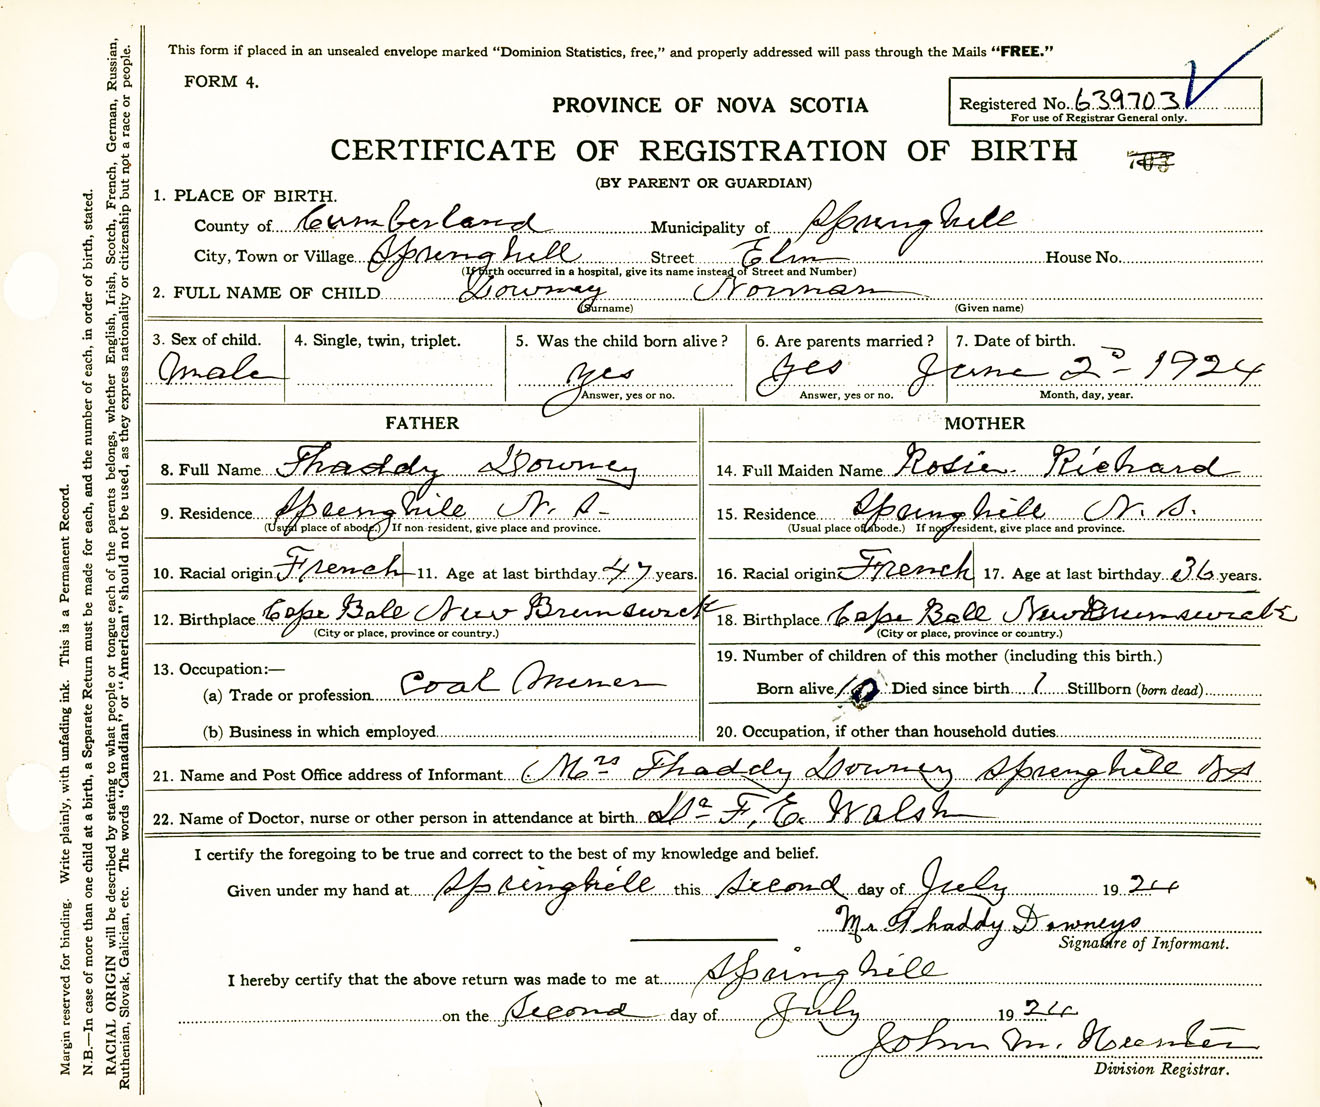 This form if placed in an unsealed envelope marked "Dominion Statistics, free," and properly addressed will pass through the Mails "FREE."
FORM 4.
Registered No. 639703
For use of Registrar General only.
PROVINCE OF NOVA SCOTIA
CERTIFICATE OF REGISTRATION OF BIRTH
703
(BY PARENT OR GUARDIAN)
1. PLACE OF BIRTH.
County of Cumberland Municipality of Springhill
City, Town or Village Springhill Street Elm House No.
(If birth occurred in a hospital, give its name instead of Street and Number)
2. FULL NAME OF CHILD Downey Norman
(Surname) (Given name)
3. Sex of child. 4. Single, twin, triplet. 5. Was the child born alive? 6. Are parents married? 7. Date of birth.
Male yes yes June 2nd 1924
Answer, yes or no. Answer, yes or no. Month, day, year.
FATHER MOTHER
8. Full Name Thaddy Downey 14. Full Maiden Name Rosie Richard
9. Residence Springhill N.S. 15. Residence Springhill N.S.
(Usual place of abode.) If non resident, give place and province. (Usual place of abode.) If non resident, give place and province.
10. Racial origin French 11. Age at last birthday 47 years. 16. Racial origin French 17. Age at last birthday 36 years.
12. Birthplace Cape Ball New Brunswick 18. Birthplace Cape Ball New Brunswick
(City or place, province or country.) (City or place, province or country.)
13. Occupation:— 19. Number of children of this mother (including this birth.)
(a) Trade or profession Coal Miner Born alive 10 Died since birth 1 Stillborn (born dead)
(b) Business in which employed 20. Occupation, if other than household duties
21. Name and Post Office address of Informant Mrs Thaddy Downey Springhill NS
22. Name of Doctor, nurse or other person in attendance at birth Dr F. E. Walsh
I certify the foregoing to be true and correct to the best of my knowledge and belief.
Given under my hand at Springhill this second day of July 1924
Mr Thaddy Downeys
Signature of Informant.
I hereby certify that the above return was made to me at Springhill
on the second day of July 1924
John M. Hunter
Division Registrar.
Margin reserved for binding. Write plainly, with unfading ink. This is a Permanent Record.
N.B.—In case of more than one child at a birth, a Separate Return must be made for each, and the number of each, in order of birth, stated.
RACIAL ORIGIN will be described by stating to what people or tongue each of the parents belongs, whether English, Irish, Scotch, French, German, Russian,
Ruthenian, Slovak, Galician, etc. The words "Canadian" or "American" should not be used, as they express nationality or citizenship but not a race or people.